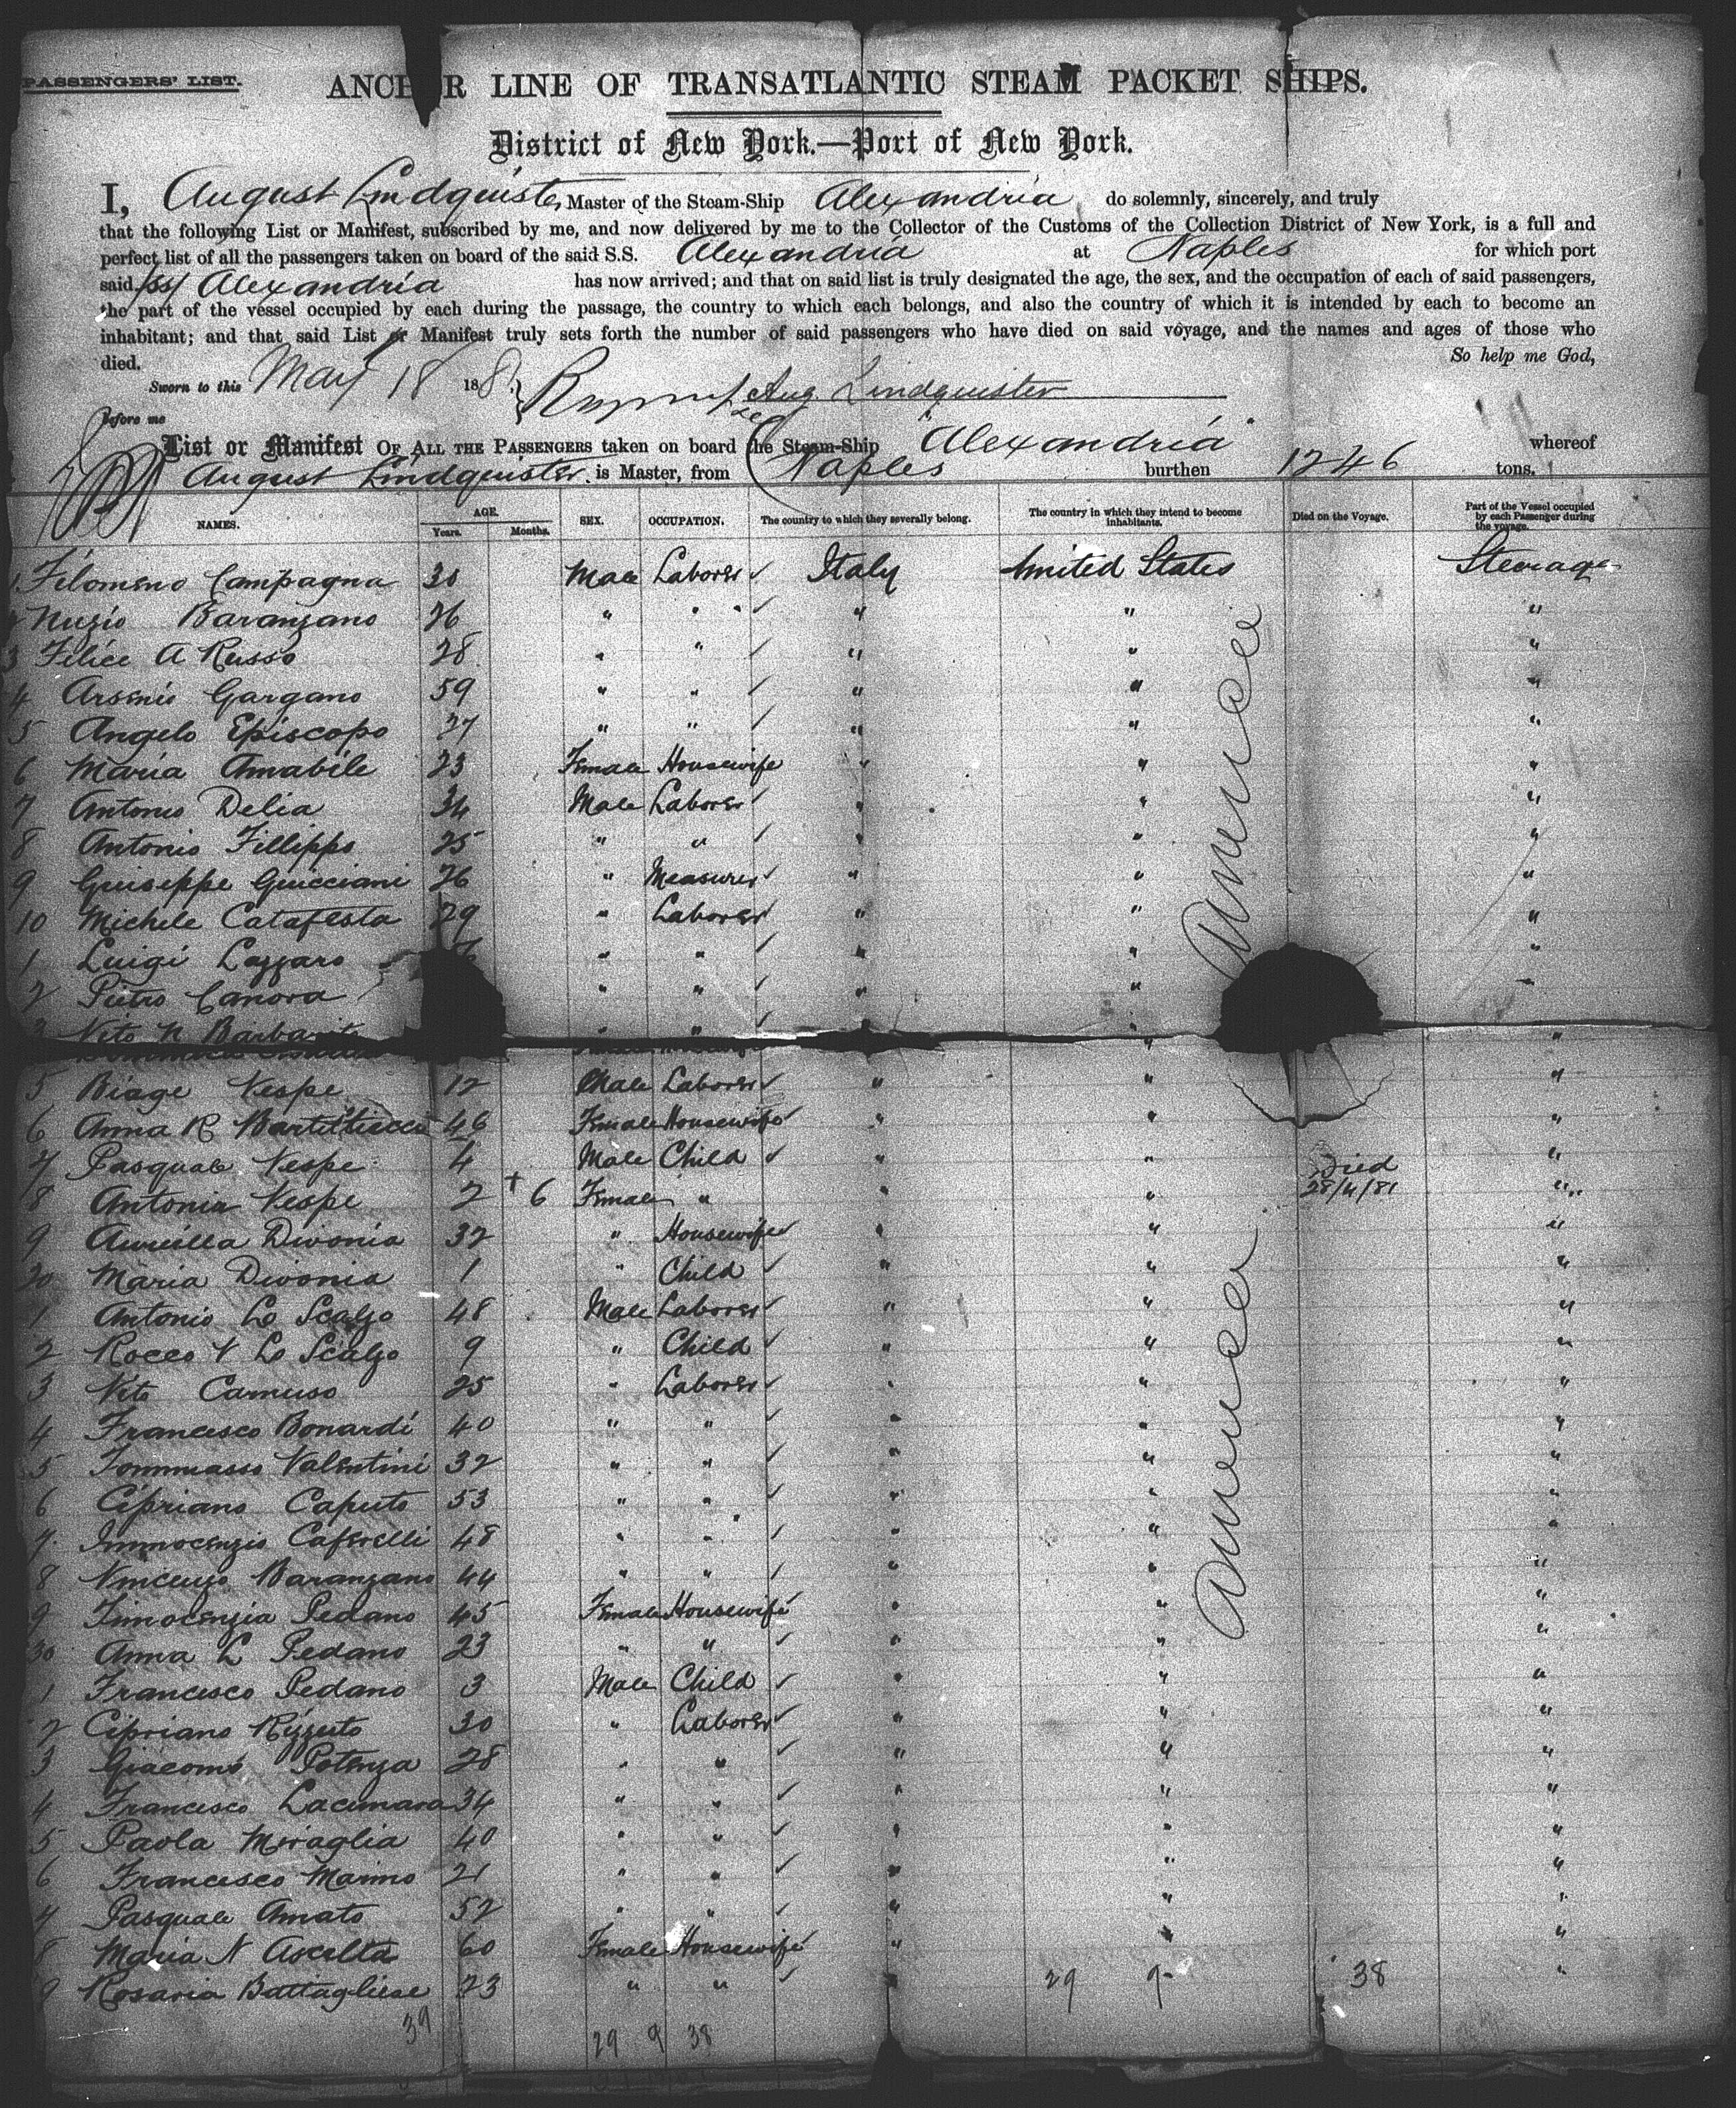 PASSENGERS' LIST.
ANCHOR LINE OF TRANSATLANTIC STEAM PACKET SHIPS.
District of New York.—Port of New York.
I, August Lindquister, Master of the Steam-Ship Alexandria do solemnly, sincerely, and truly
that the following List or Manifest, subscribed by me, and now delivered by me to the Collector of the Customs of the Collection District of New York, is a full and
perfect list of all the passengers taken on board of the said S.S. Alexandria at Naples for which port
said SS Alexandria has now arrived; and that on said list is truly designated the age, the sex, and the occupation of each of said passengers,
the part of the vessel occupied by each during the passage, the country to which each belongs, and also the country of which it is intended by each to become an
inhabitant; and that said List or Manifest truly sets forth the number of said passengers who have died on said voyage, and the names and ages of those who
died. So help me God,
Sworn to this May 18 1881 Aug. Lindquister
Before me
List or Manifest OF ALL THE PASSENGERS taken on board the Steam-Ship Alexandria whereof
August Lindquister is Master, from Naples burthen 1246 tons.
NAMES. AGE. Years. Months. SEX. OCCUPATION. The country to which they severally belong. The country in which they intend to become inhabitants. Died on the Voyage. Part of the Vessel occupied by each Passenger during the voyage.
1 Filomeno Campagna 30 Male Laborer ✓ Italy United States Steerage
2 Nuzio Baranzano 26 " " ✓ " " "
3 Felice A Russo 28 " " ✓ " " "
4 Arsenio Gargano 59 " " ✓ " " "
5 Angelo Episcopo 27 " " ✓ " " "
6 Maria Amabile 23 Female Housewife " " "
7 Antonio Delia 34 Male Laborer ✓ " " "
8 Antonio Fillippo 25 " " ✓ " " "
9 Guiseppe Guicciani 26 " Measurer ✓ " " "
10 Michele Catafesta 29 " Laborer ✓ " " "
1 Luigi Lazzaro " " ✓ " " "
2 Pietro Canova " " ✓ " " "
3 Vito N " " ✓ "
5 Biage Vespe 12 Male Laborer ✓ " " "
6 Anna R 46 Female Housewife ✓ " " "
7 Pasquale Vespe 4 Male Child ✓ " " "
8 Antonia Vespe 2 + 6 Female " " Died 28/4/81 "
9 Divonia 32 " Housewife ✓ " " "
20 Maria Divonia 1 " Child ✓ " " "
1 Antonio Lo Scalzo 48 Male Laborer ✓ " " "
2 Rocco V Lo Scalzo 9 " Child ✓ " " "
3 Vito Camuso 25 " Laborer ✓ " " "
4 Francesco Bonardi 40 " " ✓ " " "
5 Tommasso Valentini 32 " " ✓ " " "
6 Cipriano Caputo 53 " " ✓ " " "
7 Innocenzio Caferelli 48 " " ✓ " " "
8 Vincenzo Baranzano 44 " " ✓ " " "
9 Innocenzia Pedano 45 Female Housewife ✓ " " "
30 Anna L Pedano 23 " " ✓ " " "
1 Francesco Pedano 3 Male Child ✓ " " "
2 Cipriano Rizzuto 30 " Laborer ✓ " " "
3 Giacomo Potenza 28 " " ✓ " " "
4 Francesco Lacumara 34 " " ✓ " " "
5 Paola Miraglia 40 " " ✓ " " "
6 Francesco Marino 21 " " ✓ " " "
7 Pasquale Amato 52 " " ✓ " " "
8 Maria N Ascelta 60 Female Housewife ✓ " " "
9 Rosaria Battagliese 23 " " ✓ " 29 9 38 "
39 29 9 38